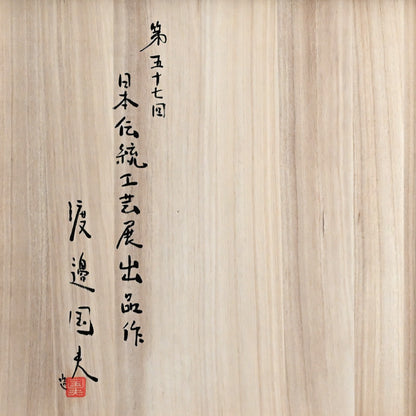 第五十七回
日本伝統工芸展出品作
渡邉国夫